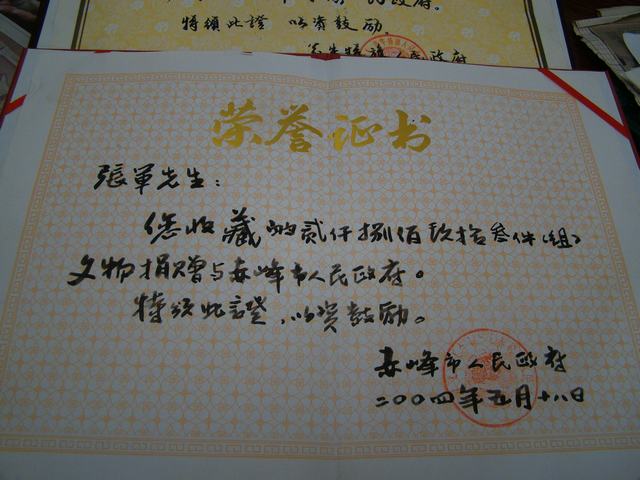 民政府。
特頒此證 以资鼓励。
人民政府
荣誉证书
張軍先生：
您收藏的贰仟捌佰玖拾叁件（组）
文物捐赠与赤峰市人民政府。
特颁此證，以资鼓励。
赤峰市人民政府
二〇〇四年五月十八日